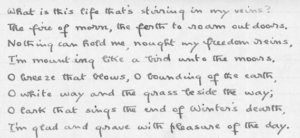 What is this life that's stirring in my veins?
The fire of morn, the forth to roam out doors.
Nothing can hold me, nought my freedom reins,
I'm mounting like a bird unto the moors.
O breeze that blows, O bounding of the earth,
O white way and the grass beside the way;
O lark that sings the end of Winter's dearth,
I'm glad and grave with pleasure of the day.